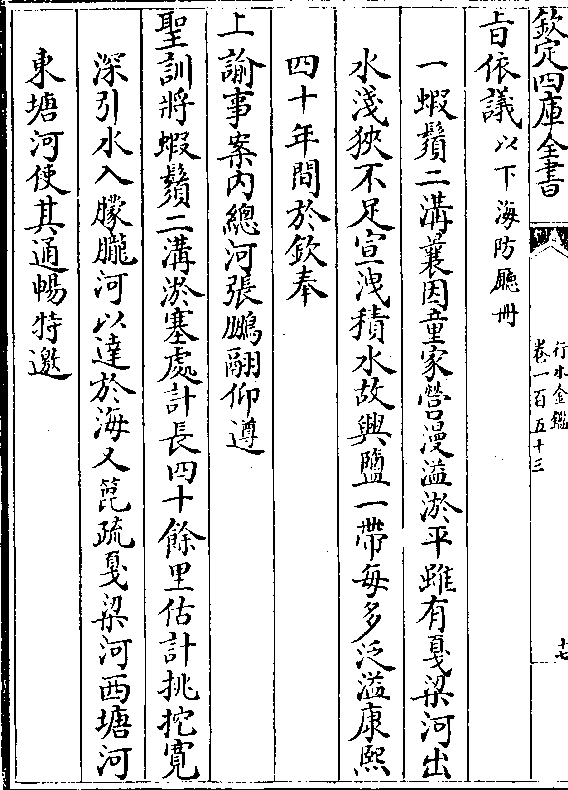 欽定四庫全書
行水金鑑
卷一百五十三
十七
旨依議以下海防廳冊
一蝦鬚二溝蓑因童家營漫溢淤平雖有戛梁河出
水淺狹不足宣洩積水故興鹽一帶每多泛溢康熙
四十年間於欽奉
上諭事案內總河張鵬翮仰遵
聖訓將蝦鬚二溝淤塞處計長四十餘里估計挑挖寬
深引水入朦朧河以達於海又箆疏戛梁河西塘河
東塘河使其通暢特邀